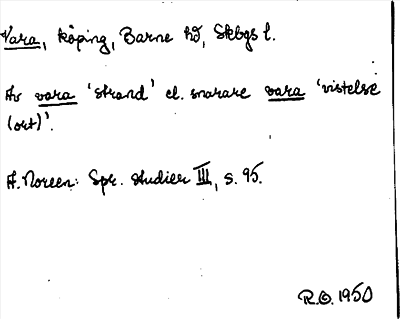 Vara, köping, Barne hd, Skbgs l.
Av vara 'strand' el. snarare vara 'vistelse
(ort)'.
A. Noreen: Spr. studier III, s. 95.
R.O. 1950